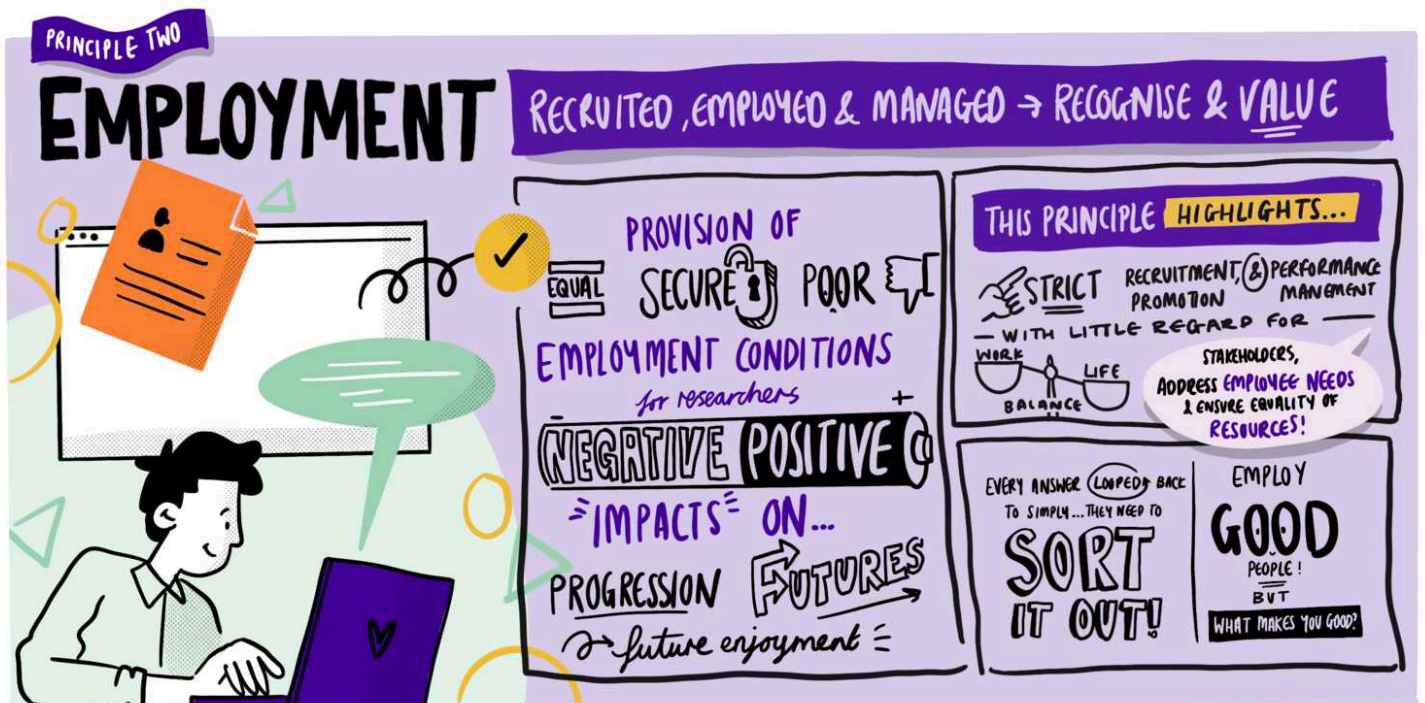 PRINCIPLE TWO
EMPLOYMENT
RECRUITED, EMPLOYED & MANAGED → RECOGNISE & VALUE
PROVISION OF
EQUAL SECURE POOR
EMPLOYMENT CONDITIONS
for researchers
- +
NEGATIVE POSITIVE
"IMPACTS" ON...
PROGRESSION FUTURES
→ future enjoyment
THIS PRINCIPLE HIGHLIGHTS...
STRICT RECRUITMENT, & PERFORMANCE
PROMOTION MANEMENT
- WITH LITTLE REGARD FOR -
WORK
LIFE
BALANCE
STAKEHOLDERS,
ADDRESS EMPLOYEE NEEDS
& ENSURE EQUALITY OF
RESOURCES!
EVERY ANSWER LOOPED BACK
TO SIMPLY... THEY NEED TO
SORT
IT OUT!
EMPLOY
GOOD
PEOPLE!
BUT
WHAT MAKES YOU GOOD?